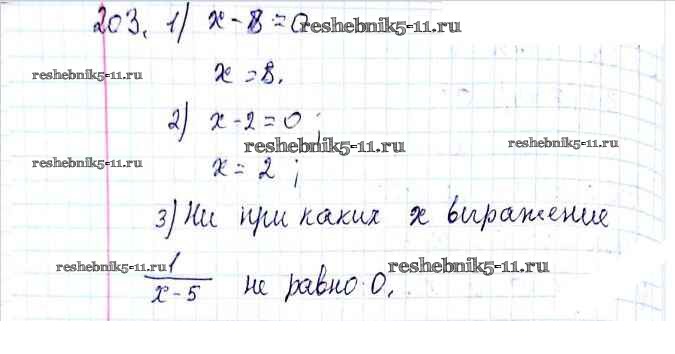 203. 1) x - 8 = 0
reshebnik5-11.ru
x = 8.
reshebnik5-11.ru
reshebnik5-11.ru
2) x - 2 = 0;
reshebnik5-11.ru
reshebnik5-11.ru
x = 2;
reshebnik5-11.ru
3) Ни при каких x выражение
reshebnik5-11.ru
1
reshebnik5-11.ru
x - 5 не равно 0.